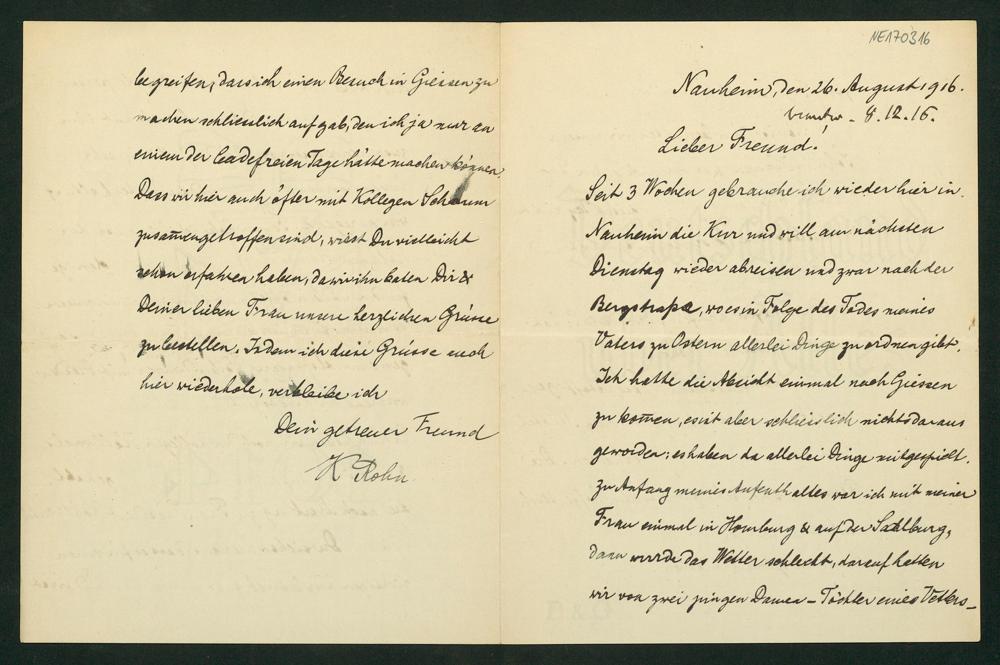 NE170316
Nauheim, den 26. August 1916.
beantw. 8.12.16.
Lieber Freund!
Seit 3 Wochen gebrauche ich wieder hier in
Nauheim die Kur und will am nächsten
Dienstag wieder abreisen und zwar nach der
Bergstraße, wo es in Folge des Todes meines
Vaters zu Ostern allerlei Dinge zu ordnen gibt.
Ich hatte die Absicht einmal nach Giessen
zu kom̄en, es ist aber schliesslich nichts daraus
geworden; es haben da allerlei Dinge mitgespielt.
Zu Anfang meines Aufenthaltes war ich mit meiner
Frau einmal in Homburg & auf der Saalburg,
dann wurde das Wetter schlecht, darauf hatten
wir von zwei jungen Damen – Töchter eines Vetters –
begreifen, dass ich einen Besuch in Giessen zu
machen schliesslich aufgab, den ich ja nur an
einem der badefreien Tage hätte machen können.
Dass wir hier auch öfter mit Kollegen Schaum
zusam̄engetroffen sind, wirst Du vielleicht
schon erfahren haben, da wir ihn baten Dir &
Deiner lieben Frau unsere herzlichen Grüsse
zu bestellen. Indem ich diese Grüsse auch
hier wiederhole, verbleibe ich
Dein getreuer Freund
K Rohn